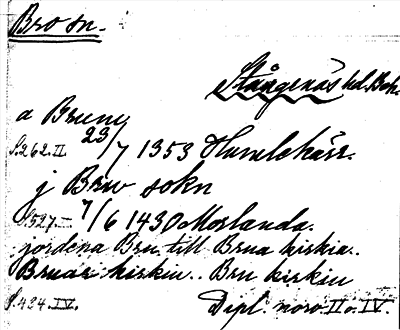 Bro sn.
Stångenäs hd. Boh.
a Bruny
S.262.II 23/7 1353 Humlekärr.
j Brw sokn
S.527.I 7/6 1430 Morlanda.
jordena Bru till Brua kirkia..
Bruar kirkiu.. Bru kirkiu
S.424.IV. Dipl. norv. II o. IV.